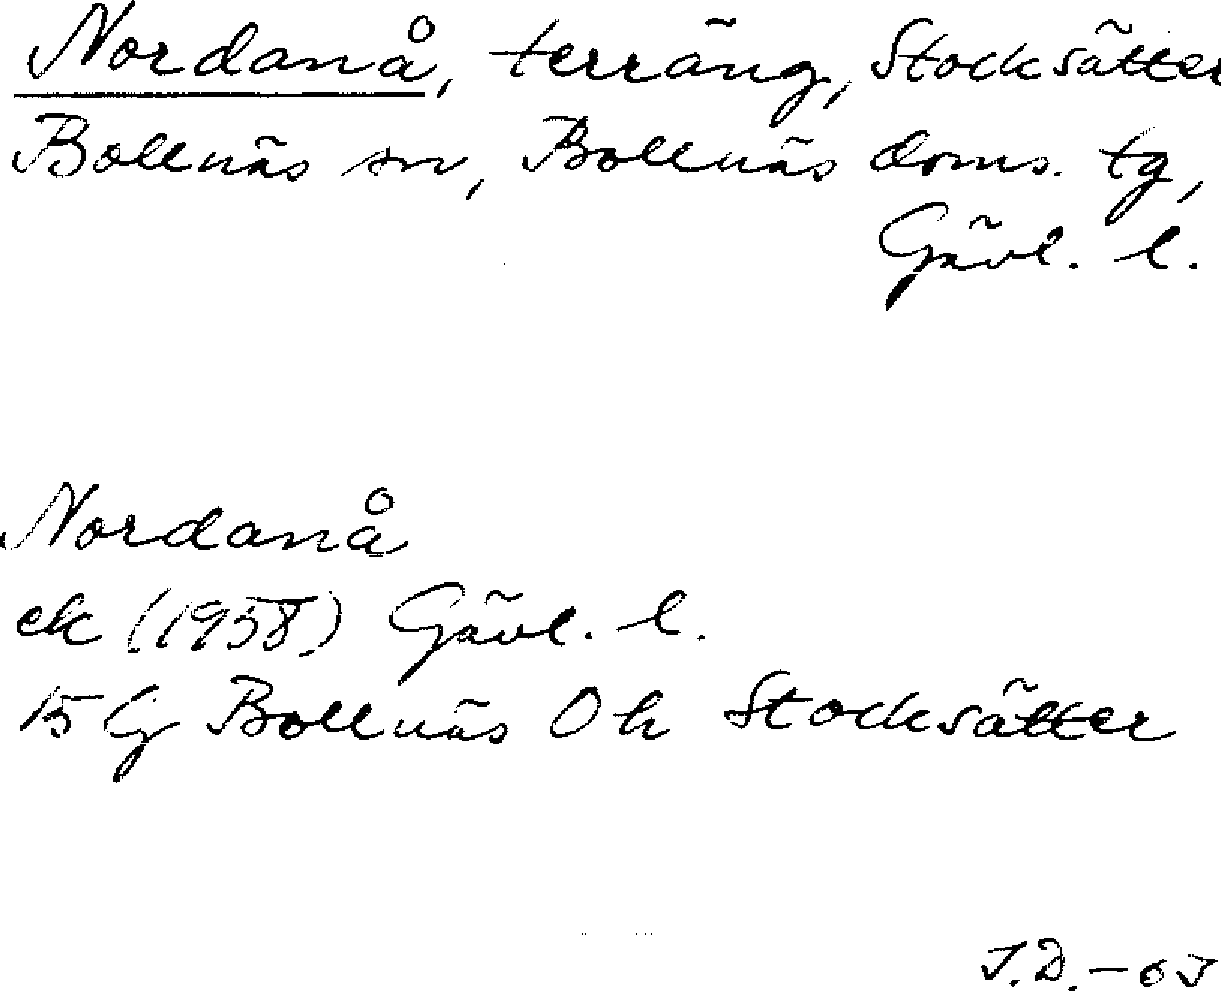 Nordanå, terräng, Stocksätter
Bollnäs sn, Bollnäs doms. tg,
Gävl. l.
Nordanå
ek (1958) Gävl. l.
15 G Bollnäs Ok Stocksätter